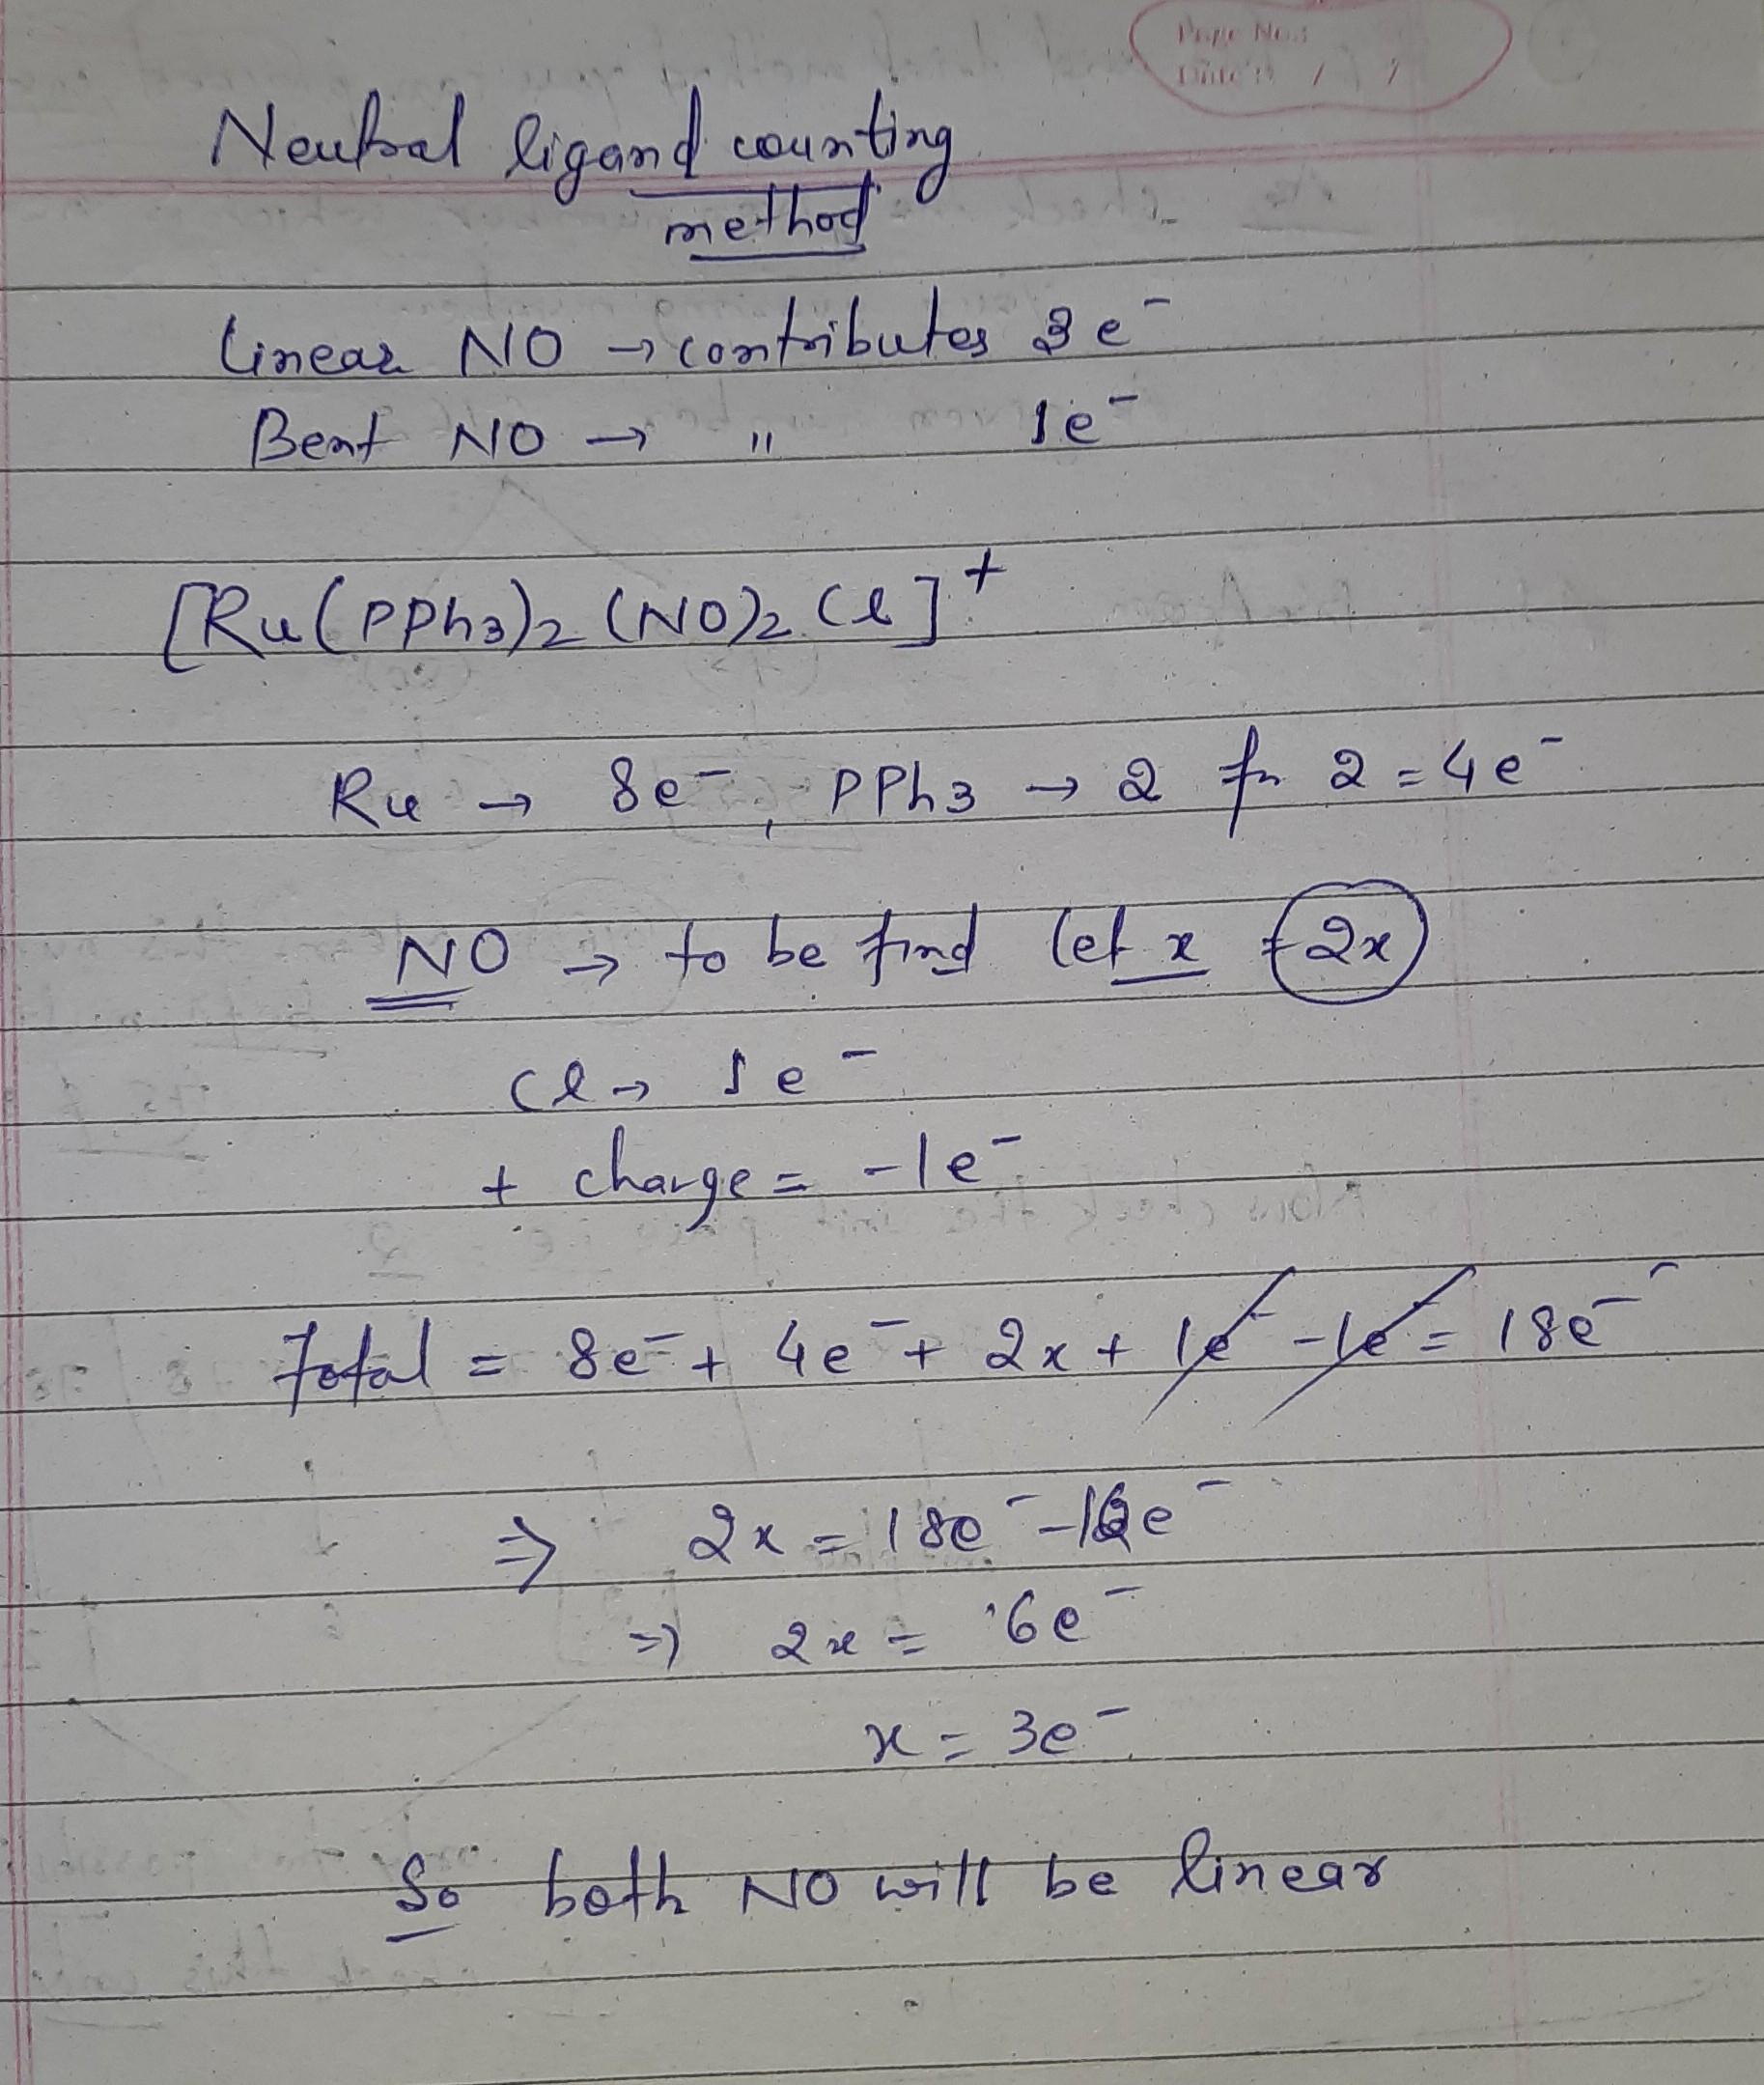 Page No.:
Date: / /
Neutral ligand counting
method
Linear NO → contributes 3e⁻
Bent NO → " 1e⁻
[Ru(PPh₃)₂(NO)₂Cl]⁺
Ru → 8e⁻, PPh₃ → 2 for 2 = 4e⁻
NO → to be find let x = 2x
Cl → 1e⁻
+ charge = -1e⁻
Total = 8e⁻ + 4e⁻ + 2x + 1e⁻ - 1e⁻ = 18e⁻
⇒ 2x = 18e⁻ - 12e⁻
⇒ 2x = 6e⁻
x = 3e⁻
So both NO will be linear